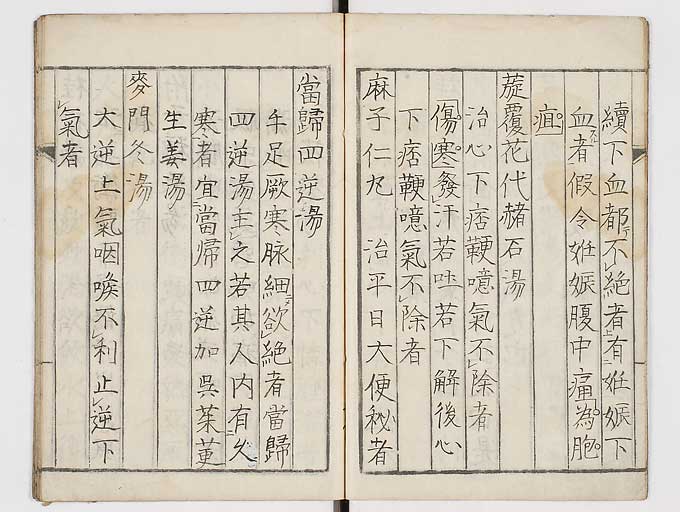 續下血都不絕者有姙娠下
血者假令姙娠腹中痛為胞
疸
蓯覆花代赭石湯
治心下痞鞕噫氣不除者
傷寒發汗若吐若下解後心
下痞鞕噫氣不除者
麻子仁丸 治平日大便秘者
當歸四逆湯
手足厥寒脉細欲絕者當歸
四逆湯主之若其人内有久
寒者宜當帰四逆加呉茱茰
生姜湯
麥門冬湯
大逆上氣咽喉不利止逆下
氣者